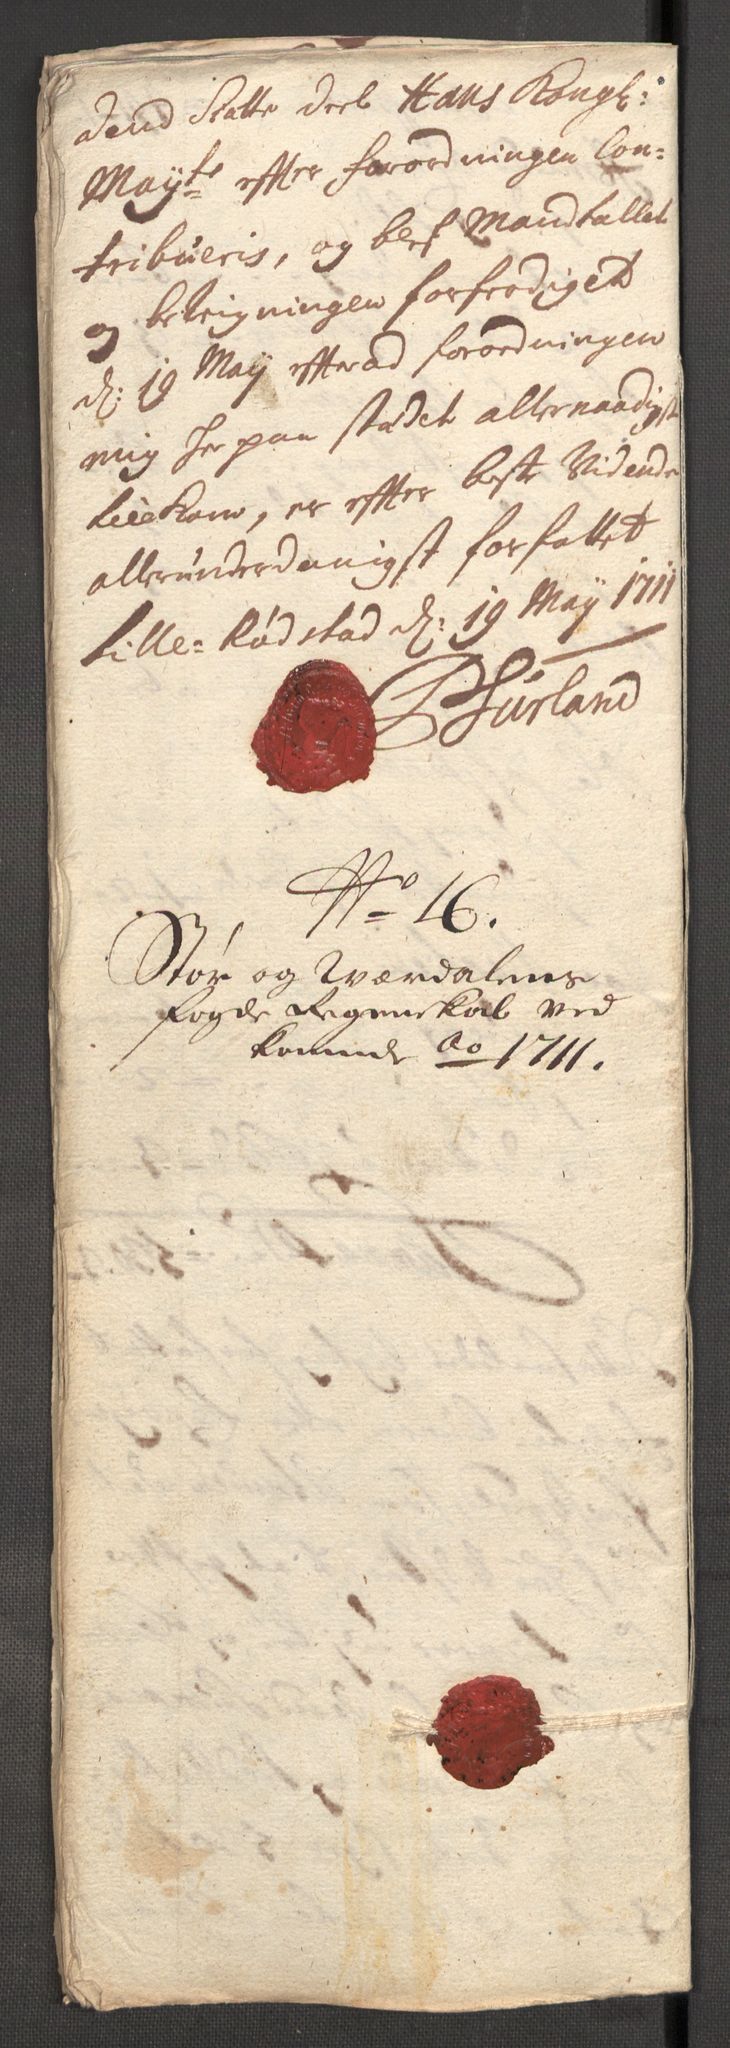 dend Skatte deel Hans Kongl:
Mayts effter forordningen Con=
tribueris, og bes: Mandtallet
og beregningen forfærdiget
d: 19 May effter forordningen
mig her paa stædet allernaadigst
er effter beste Vidende
allerunderdanigst forfattet
Lille=Rødstad d: 19 May 1711
Hurland
No 16.
Stør og Wærdalens
fogde Regenskab ved
kommende Ao 1711.